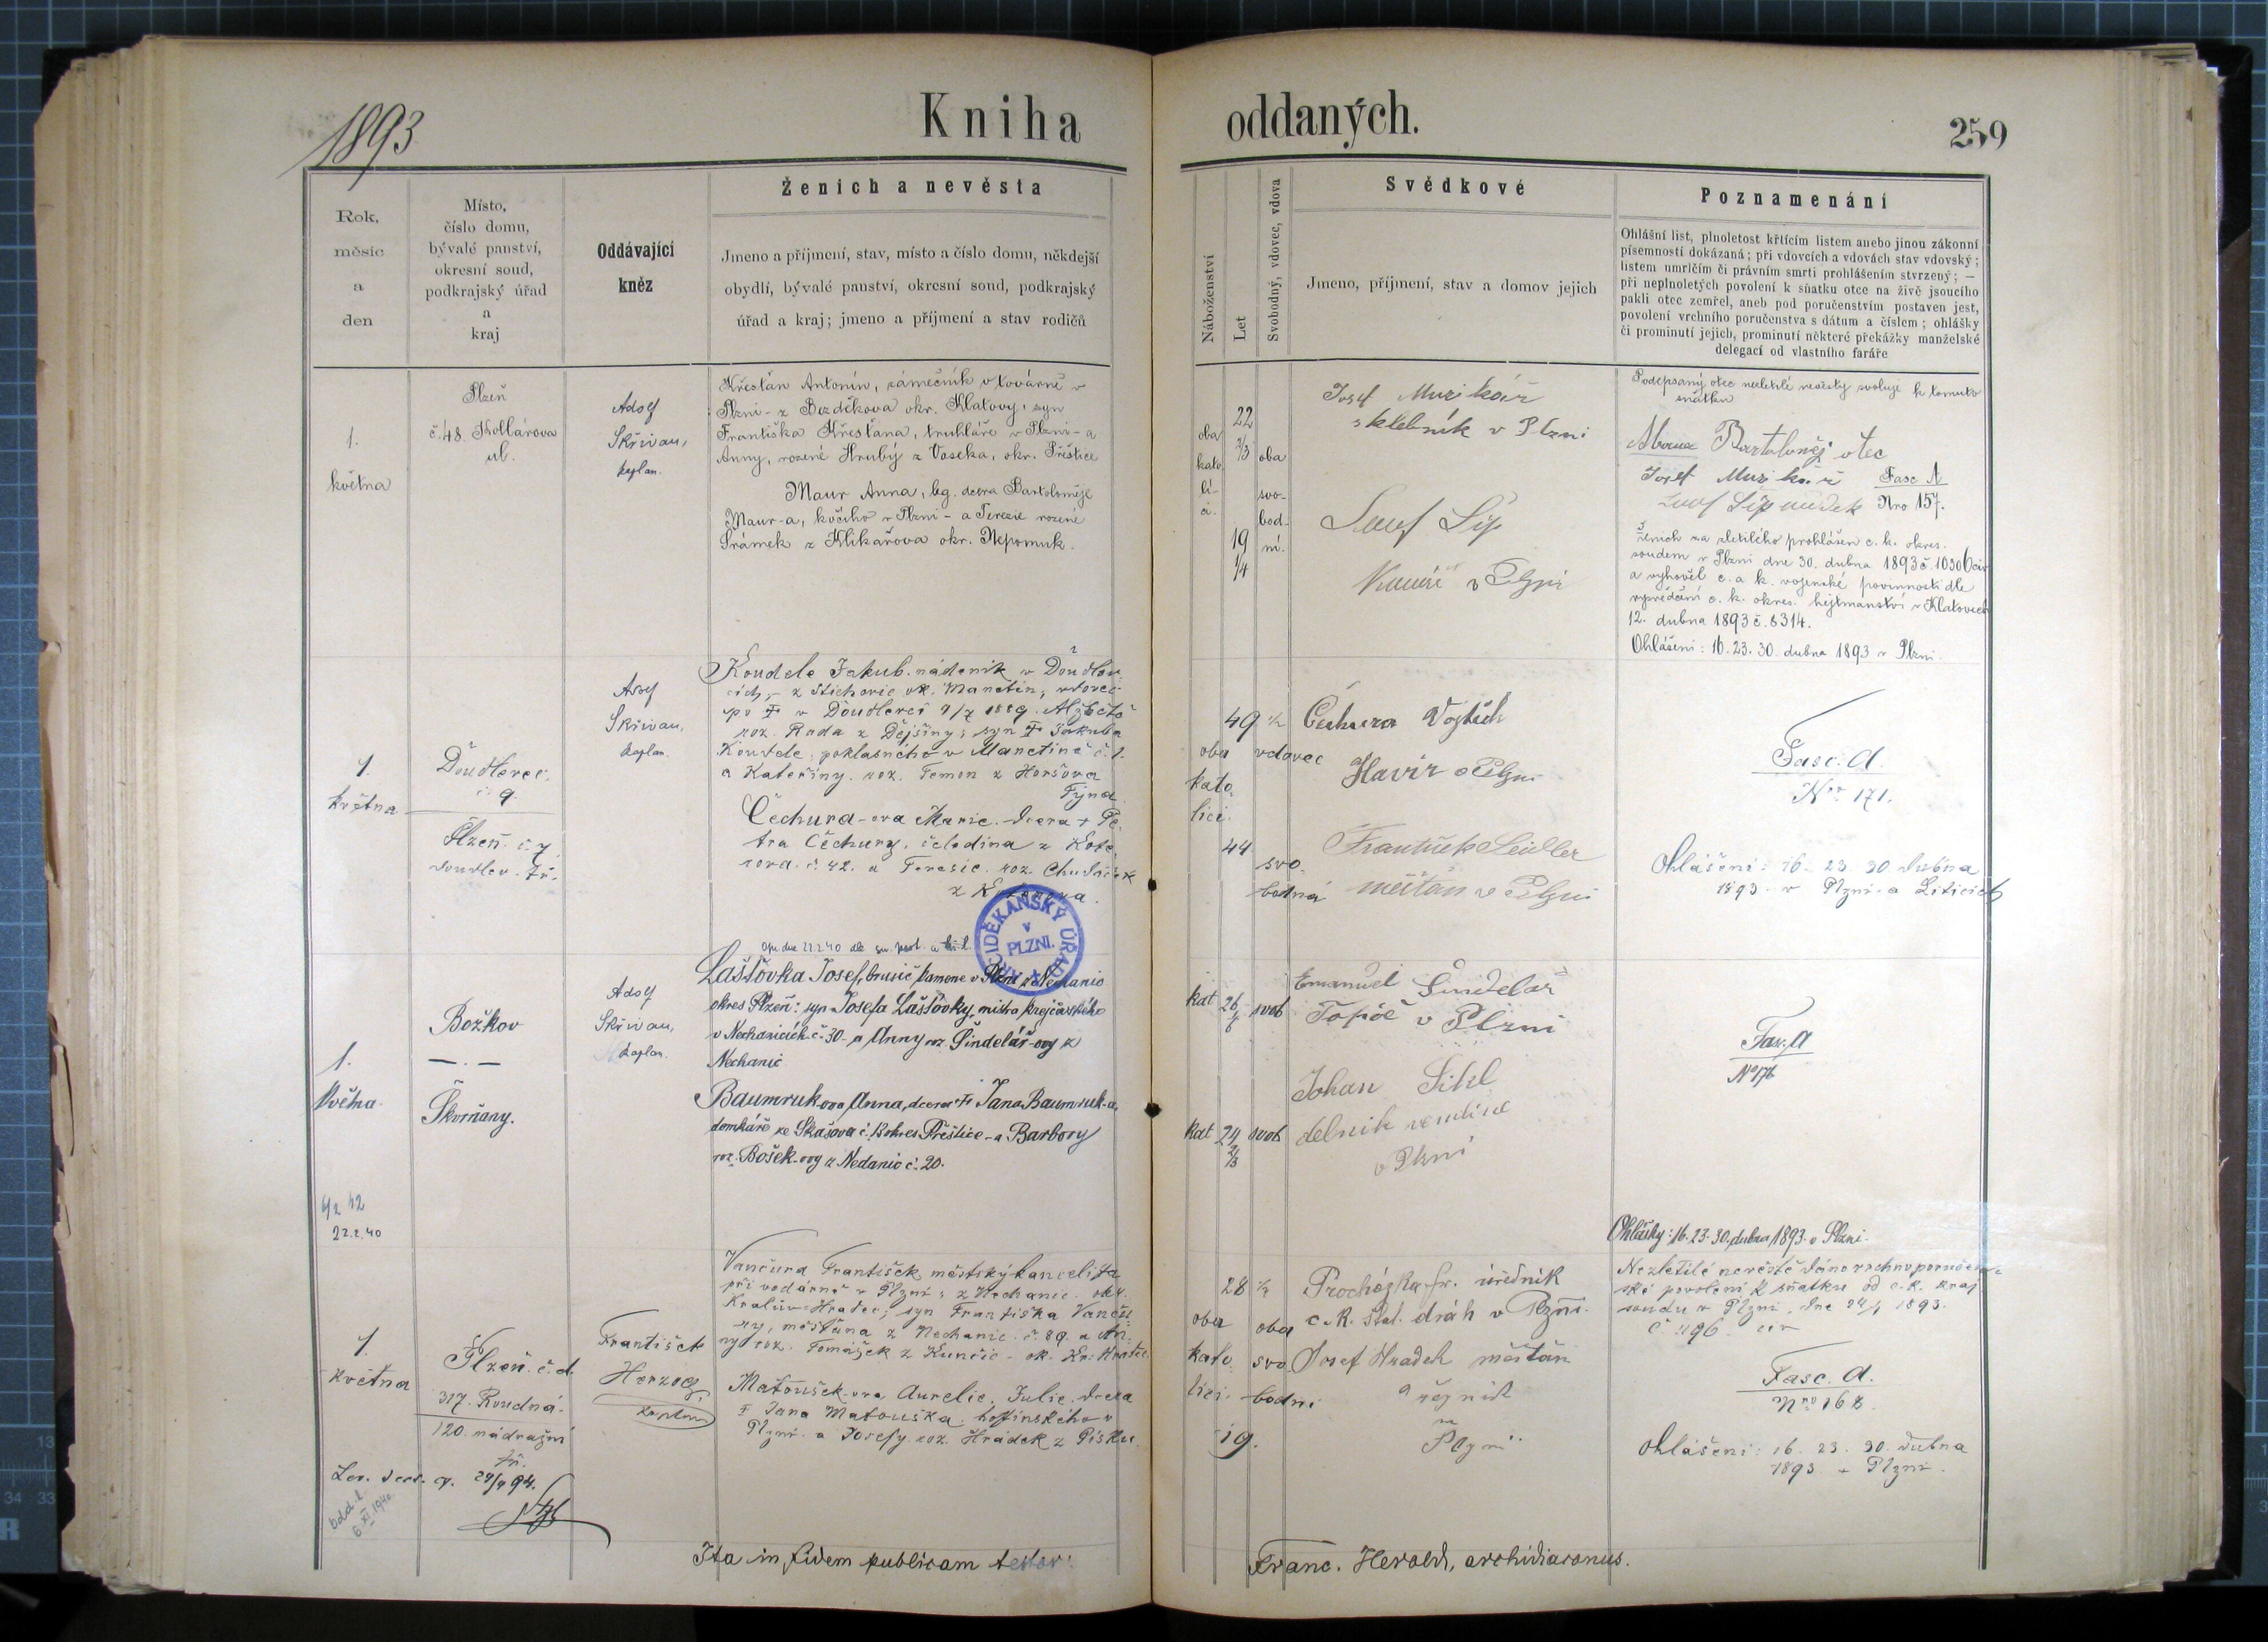 1893
Kniha oddaných.
259
Rok,
měsíc
a
den
Místo,
číslo domu,
bývalé panství,
okresní soud,
podkrajský úřad
a
kraj
Oddávající
kněz
Ženich a nevěsta
Jmeno a příjmení, stav, místo a číslo domu, někdejší
obydlí, bývalé panství, okresní soud, podkrajský
úřad a kraj; jmeno a příjmení a stav rodičů
Náboženství
Let
Svobodný, vdovec, vdova
Svědkové
Jmeno, příjmení, stav a domov jejich
Poznamenání
Ohlášní list, plnoletost křtícím listem anebo jinou zákonní
písemností dokázaná; při vdovcích a vdovách stav vdovský;
listem umrlčím či právním smrti prohlášením stvrzený; —
při neplnoletých povolení k sňatku otce na živě jsoucího
pakli otec zemřel, aneb pod poručenstvím postaven jest,
povolení vrchního poručenstva s dátum a číslem; ohlášky
či prominutí jejich, prominutí některé překážky manželské
delegací od vlastního faráře
1.
května
Plzeň
č. 48. Kollárova
ul.
Adolf
Skřivan,
kaplan.
Křesťan Antonín, zámečník v továrně v
Plzni - z Bezděkova okr. Klatovy, syn
Františka Křesťana, truhláře v Plzni - a
Anny, rozené Hrubý z Voseka, okr. Přeštice
Maur Anna, leg. dcera Bartoloměje
Maur-a, kočího v Plzni - a Terezie rozené
Šrámek z Klikařova okr. Nepomuk.
oba
kato
lí-
ci.
22
2/3
19
1/4
oba
svo-
bod-
ní.
Josef Muzikář
sklebník v Plzni
Josef Šíp
v Plzni
Podepsaný otec nezletilé nevěsty svoluje k tomuto
sňatku
Bartoloměj otec
Josef Muzikář
Josef Šíp svědek
Fasc A
Nro 157.
Ženich za zletilého prohlášen c. k. okres.
soudem v Plzni dne 30. dubna 1893 č. 10306 civ
a vyhověl c. a k. vojenské povinnosti dle
vysvědčení c. k. okres. hejtmanství v Klatovech
12. dubna 1893 č. 8314.
Ohlášení: 16. 23. 30. dubna 1893 v Plzni.
1.
května
Doudlevec
č. 9.
Plzeň č. 7
doudlev. tř.
Adolf
Skřivan,
kaplan.
Koudele Jakub, nádeník v Doudlev-
cích, - z Stichovic ok. Manetín, vdovec
po † v Doudlevcí 9/7 1889 Alžbětě
roz. Rada z Dejšiny; syn † Jakuba
Koudele, poklasného v Manetíně č. 1.
a Kateřiny roz. Temon z Horšova
Týna.
Čechura-ova Marie, dcera † Pe-
tra Čechury, čeledína z Kote-
rova č. 42. a Terezie roz. Chudáček
z
49 1/2
oba
kato
lici.
44
vdovec
svo
bodná
Čechura Vojtěch
Havíř v Plzni
František Seidler
měšťan v Plzni
Fasc. A.
Nro 171.
Ohlášení: 16. 23. 30 dubna
1893. v Plzni a Liticích
ARCIDĚKANSKÝ ÚŘAD
v
PLZNI.
1.
Května
Božkov
— . —
Škvrňany.
Adolf
Skřivan,
kaplan.
Opis dne 22.2.40
Laštovka Josef, brusič kamene v Plzni z Nechanic
okres Plzeň: syn Josefa Laštovky, mistra krejčovského
v Nechanicích č. 30 - a Anny roz. Šindelář-ovy z
Nechanic
Baumruk-ova Anna, dcera † Jana Baumruk-a,
domkáře ze Skašova č. 13 okres Přeštice - a Barbory
roz. Bošek-ovy z Nedanic č. 20.
kat 26 svob
kat 24 svob
Emanuel Šindelář
Topič v Plzni
Johan Šikl
v Plzni
Fasc. A
No 176
Ohlášky: 16. 23. 30. dubna 1893. v Plzni.
22.2.40
1.
května
Plzeň. č. d.
317. Roudná.
120. nádražní
tř.
František
Herzog,
kaplan
Vančura František, městský kancelista
při vodárně v Plzni; z Nechanic ok.
Králův Hradec; syn Františka Vanču-
ry, měšťana z Nechanic č. 89. a An-
ny roz. Tomášek z Kunčic - ok. Kr. Hradec.
Matoušek-ova Aurelie, Julie, dcera
† Jana Matouška, hostinského v
Plzni a Josefy roz. Hrádek z Písku.
28 1/2
oba
kato
lici
19.
oba
svo
bodni
Procházka Fr. úředník
c. k. stat. dráh v Plzni.
Josef Hradek měšťan
a řezník
Plzni
Nezletilé nevěstě dáno vrchnoporučen-
ské povolení k sňatku od c. k. kraj.
soudu v Plzni, dne 24/4 1893.
Fasc. A.
Nro 168.
Ohlášení: 16. 23. 30. dubna
1893 v Plzni.
29/4 94.
6. XI 1940
Ita in fidem publicam testor: Franc. Herold, archidiaconus.